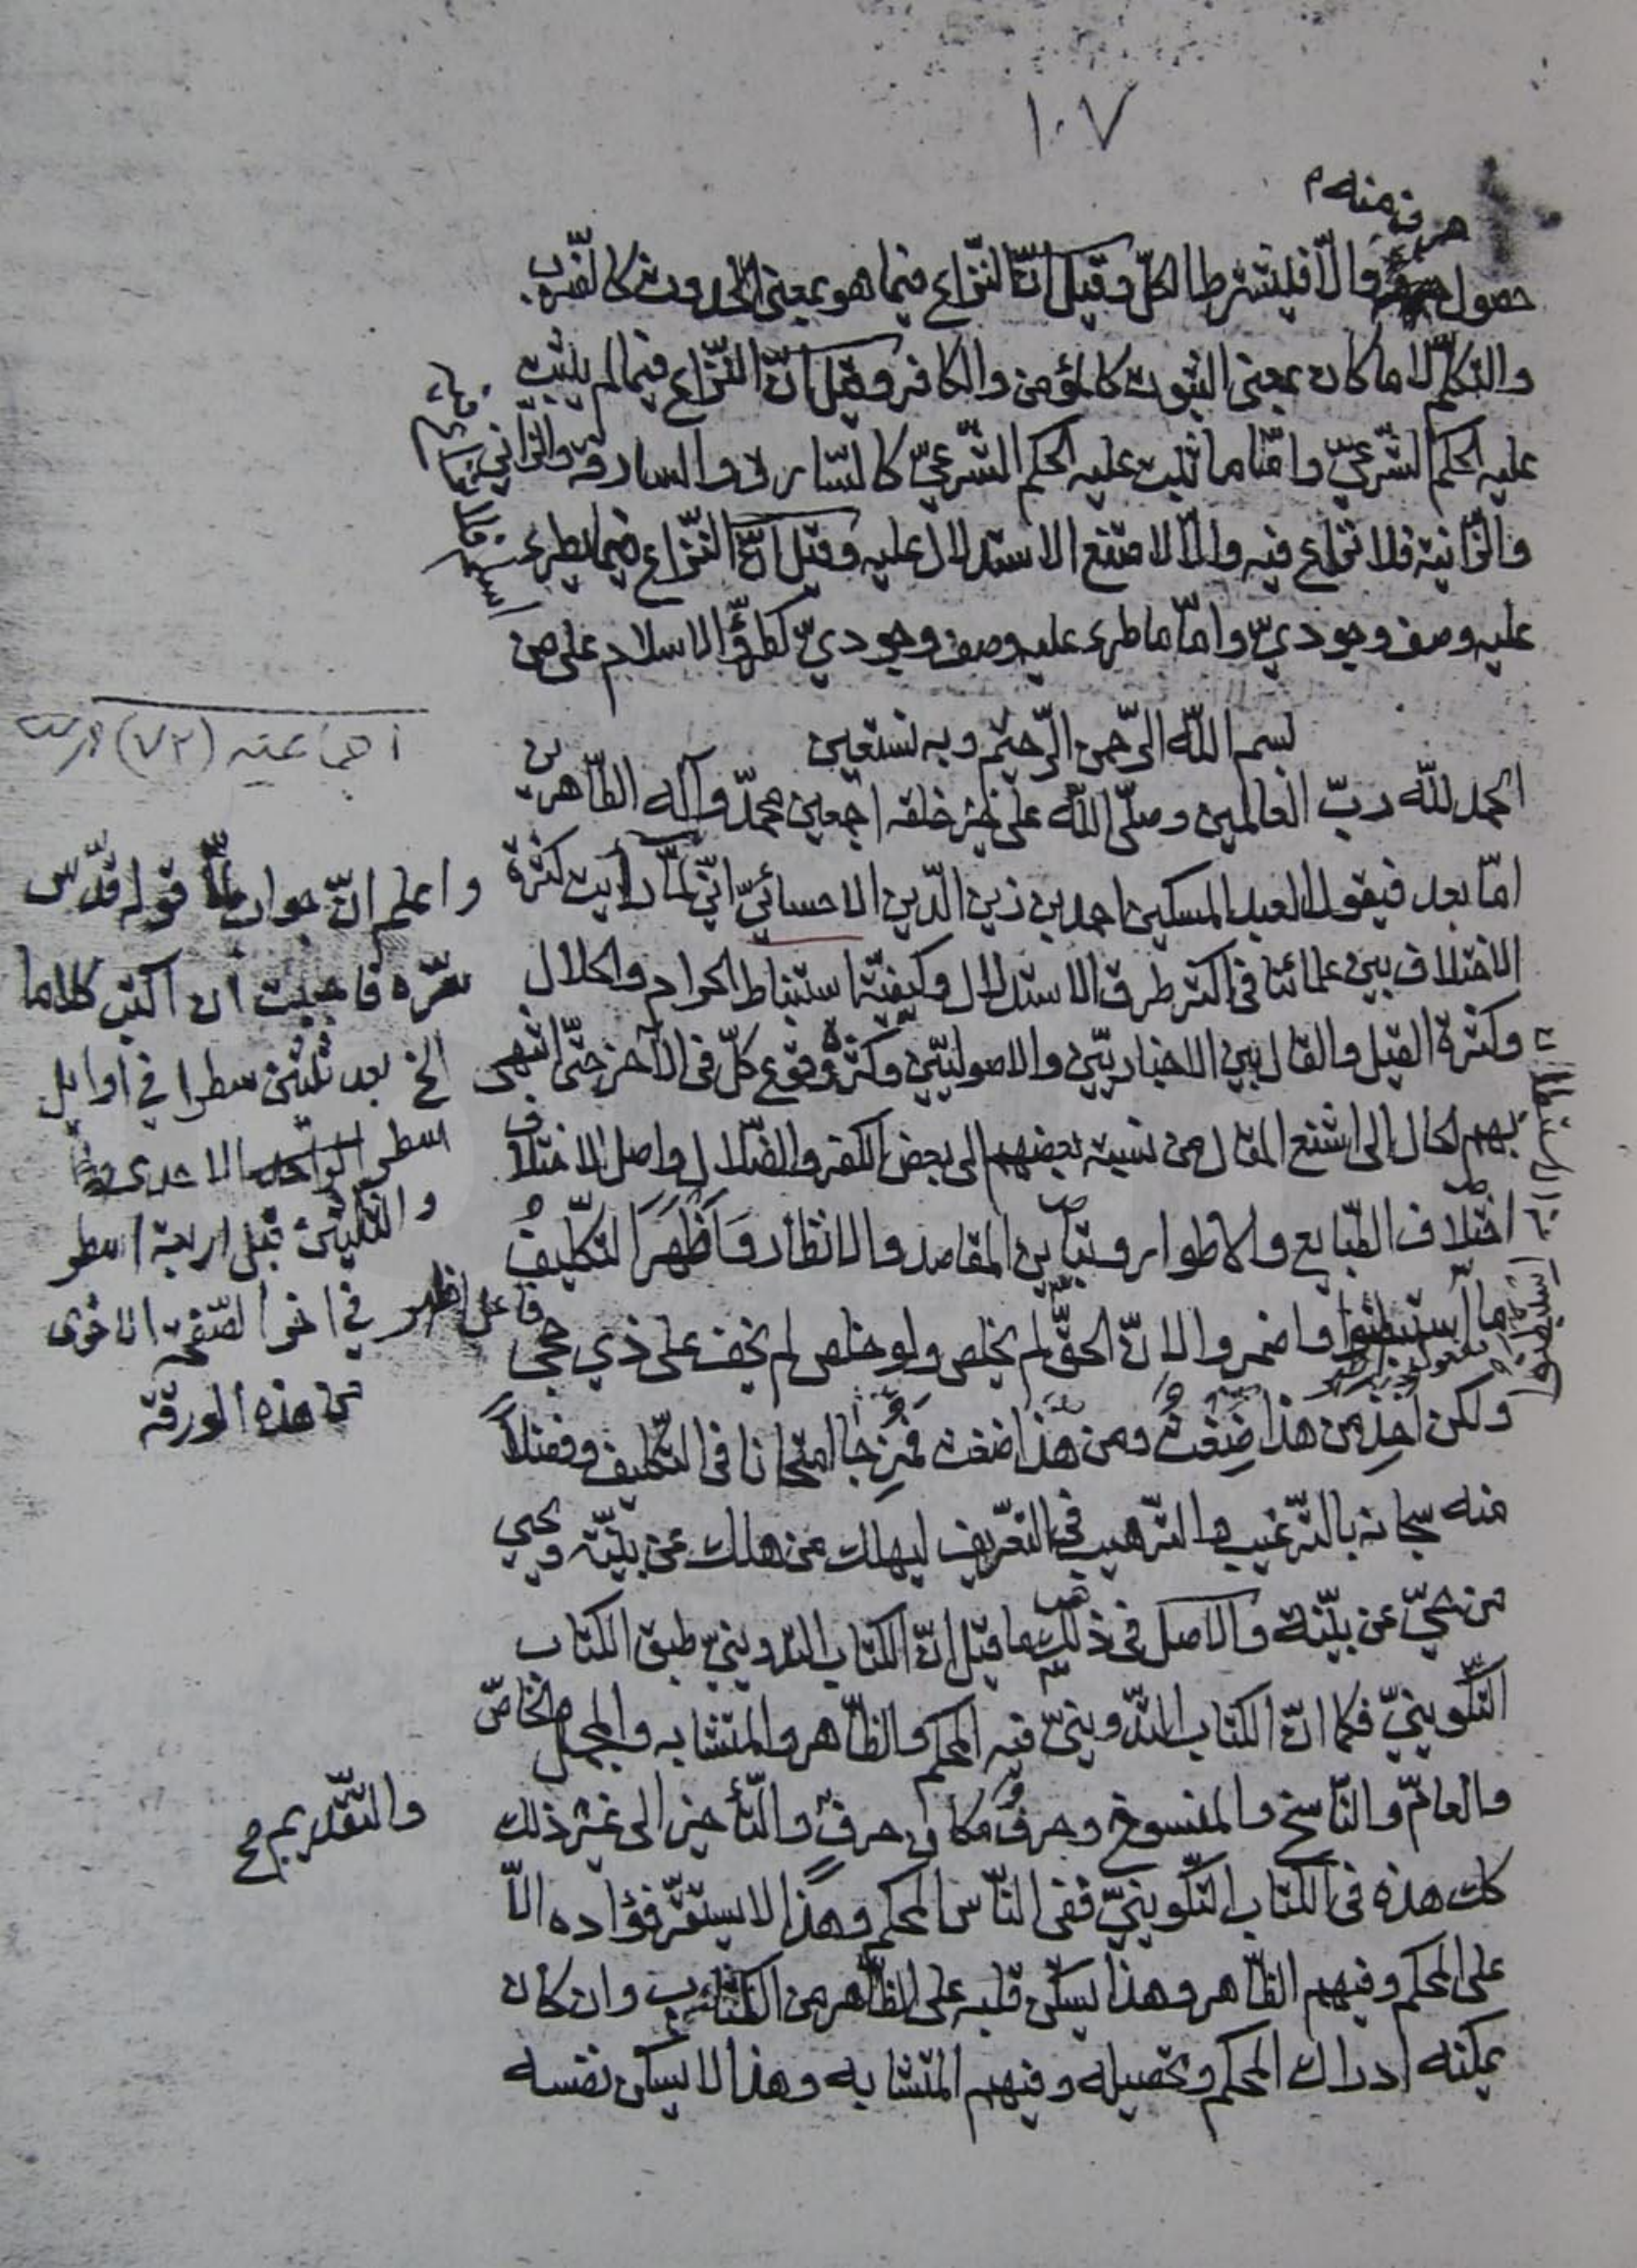 ١٠٧
حرف منه م
حصول والّا فليشترط الكلّ وقيل انّ النّزاع فيما هو بمعنى الحدوث كالضّرب
والتكلّم لا ما كان بمعنى الثبوت كالمؤمن والكافر وقيل انّ النّزاع فيما لم يثبت
عليه الحكم الشّرعيّ وامّا ما ثبت عليه الحكم الشّرعيّ كالسّارق والسارقة والزّاني
والزّانية فلا نزاع فيه والّا لامتنع الاستدلال عليه وقيل انّ النّزاع فيما لم يطرء
عليه وصف وجوديّ وامّا ما طرء عليه وصف وجوديّ كطروّ الاسلام على من
بسم اللّه الرّحمن الرّحيم وبه نستعين
اجماعيه (٧٢) ورس
الحمد للّه ربّ العالمين وصلّى اللّه على خير خلقه اجمعين محمّد وآله الطّاهرين
امّا بعد فيقول العبد المسكين احمد بن زين الدّين الاحسائيّ انّي لمّا رايت كثرة
الاختلاف بين علمائنا في اكثر طرق الاستدلال وكيفيّة استنباط الحرام والحلال
وكثرة القيل والقال بين الاخباريّين والاصوليّين وكثرة وقوع كلّ في الآخر حتّى انتهى
بهم الحال الى اشنع المقال من نسبة بعضهم الى بعض الكفر والضّلال واصل الاختلاف
اختلاف الطّبايع والاطوار وتباين المقاصد والانظار وَاَظْهَرَ التكليفُ
ما استبطنوا واضمروا لانّ الحقّ لم يخلص ولو خلص لم يخف على ذي حجى
ولكن اُخِذ من هذا ضِغْثٌ ومن هذا ضغث فمُزِجا امتحانا في التّكليف وفضلاً
منه سبحانه بالتّرغيب والتّرهيب في التّعريف ليهلك من هلك عن بيّنة ويحيى
من حيّ عن بيّنة والاصل في ذلك ما قيل انّ الكتاب التدوينيّ طبق الكتاب
التّكوينيّ فكما انّ الكتاب التّدوينيّ فيه المحكم والظّاهر والمتشابه والمجمل والخاصّ
والعامّ والنّاسخ والمنسوخ وحرفٌ مكان حرفٍ والتّأخير الى غير ذلك
كانت هذه في الكتاب التّكوينيّ ففي النّاس المحكم وهذا لا يستقرّ فؤاده الّا
على المحكم وفيهم الظّاهر وهذا يسكن قلبه على الظّاهر من الكتاب وان كان
يمكنه ادراك المحكم وتحصيله وفيهم المتشابه وهذا لا يسكن نفسه
واعلم انّ جواب لمّا قوله قدّس
سرّه فاحببت ان اكتب كلاما
الخ بعد ثلثين سطرا في اوايل
السطر الاحدى
والثّلثين قبل اربعة اسطر
في اخر الصّفحة الاخرى
من هذه الورقة
فاعل اظهر
استبطنوا
والتّقديم صح